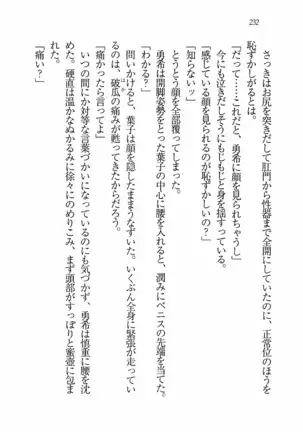 232
さっきはお尻を突きだして肛門から性器まで全開にしていたのに、正常位のほうを
恥ずかしがるとは。
「だって……これだと、勇希に顔を見られちゃうし」
今にも泣きだしそうにもじもじと身を揺すっている。
「感じている顔を見られるのが恥ずかしいの？」
「知らないッ」
とうとう顔を全部覆ってしまった。
勇希は開脚姿勢をとった葉子の中心に腰を入れると、潤みにペニスの先端を当てた。
「わかる？」
問いかけると、葉子は顔を隠したままうなずいた。いくぶん全身に緊張が走ってい
るのは、破瓜の痛みが甦ってきたからだろう。
「痛かったら言ってよ」
いつの間にか対等な言葉づかいになっているのにも気づかず、勇希は慎重に腰を沈
めた。硬直は温かなぬかるみに徐々にのめりこみ、まず頭部がすっぽりと蜜壺に包ま
「痛い？」